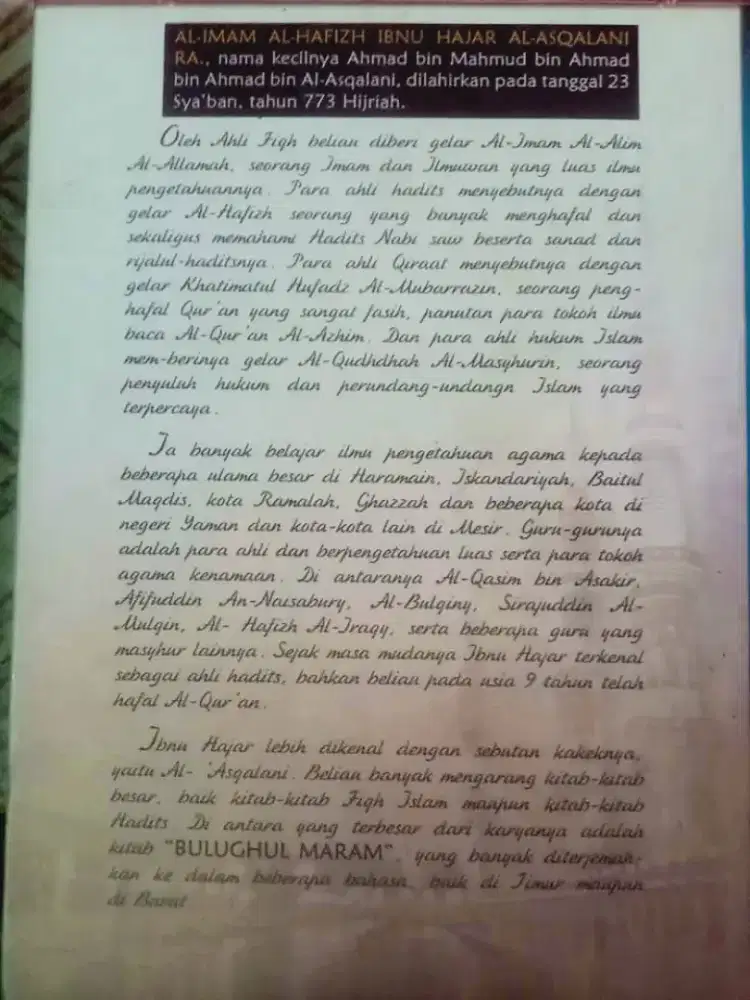 AL-IMAM AL-HAFIZH IBNU HAJAR AL-ASQALANI
RA., nama kecilnya Ahmad bin Mahmud bin Ahmad
bin Ahmad bin Al-Asqalani, dilahirkan pada tanggal 23
Sya'ban, tahun 773 Hijriah.
Oleh Ahli Fiqh beliau diberi gelar Al-Imam Al-Alim
Al-Allamah, seorang Imam dan Ilmuwan yang luas ilmu
pengetahuannya. Para ahli hadits menyebutnya dengan
gelar Al-Hafizh seorang yang banyak menghafal dan
sekaligus memahami Hadits Nabi saw beserta sanad dan
rijalul-haditsnya. Para ahli Qiraat menyebutnya dengan
gelar Khatimatul Hufadz Al-Mubarrazin, seorang peng-
hafal Qur'an yang sangat fasih, panutan para tokoh ilmu
baca Al-Qur'an Al-Azhim. Dan para ahli hukum Islam
mem-berinya gelar Al-Qudhdhah Al-Masyhurin, seorang
penyuluh hukum dan perundang-undangn Islam yang
terpercaya.
Ia banyak belajar ilmu pengetahuan agama kepada
beberapa ulama besar di Haramain, Iskandariyah, Baitul
Maqdis, kota Ramalah, Ghazzah dan beberapa kota di
negeri Yaman dan kota-kota lain di Mesir. Guru-gurunya
adalah para ahli dan berpengetahuan luas serta para tokoh
agama kenamaan. Di antaranya Al-Qasim bin Asakir,
Afifuddin An-Naisabury, Al-Bulqiny, Sirajuddin Al-
Mulqin, Al- Hafizh Al-Iraqy, serta beberapa guru yang
masyhur lainnya. Sejak masa mudanya Ibnu Hajar terkenal
sebagai ahli hadits, bahkan beliau pada usia 9 tahun telah
hafal Al-Qur'an.
Ibnu Hajar lebih dikenal dengan sebutan kakeknya,
yaitu Al- 'Asqalani. Beliau banyak mengarang kitab-kitab
besar, baik kitab-kitab Fiqh Islam maupun kitab-kitab
Hadits. Di antara yang terbesar dari karyanya adalah
kitab "BULUGHUL MARAM", yang banyak diterjemah-
kan ke dalam beberapa bahasa, baik di Timur maupun
di Barat